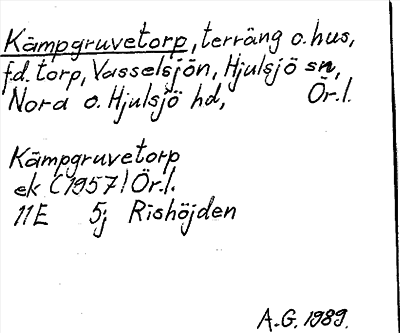 Kämpgruvetorp, terräng o. hus,
f.d. torp, Vasselsjön, Hjulsjö sn,
Nora o. Hjulsjö hd, Ör.l.
Kämpgruvetorp
ek (1957) Ör.l.
11E 5j Rishöjden
A.G. 1989.